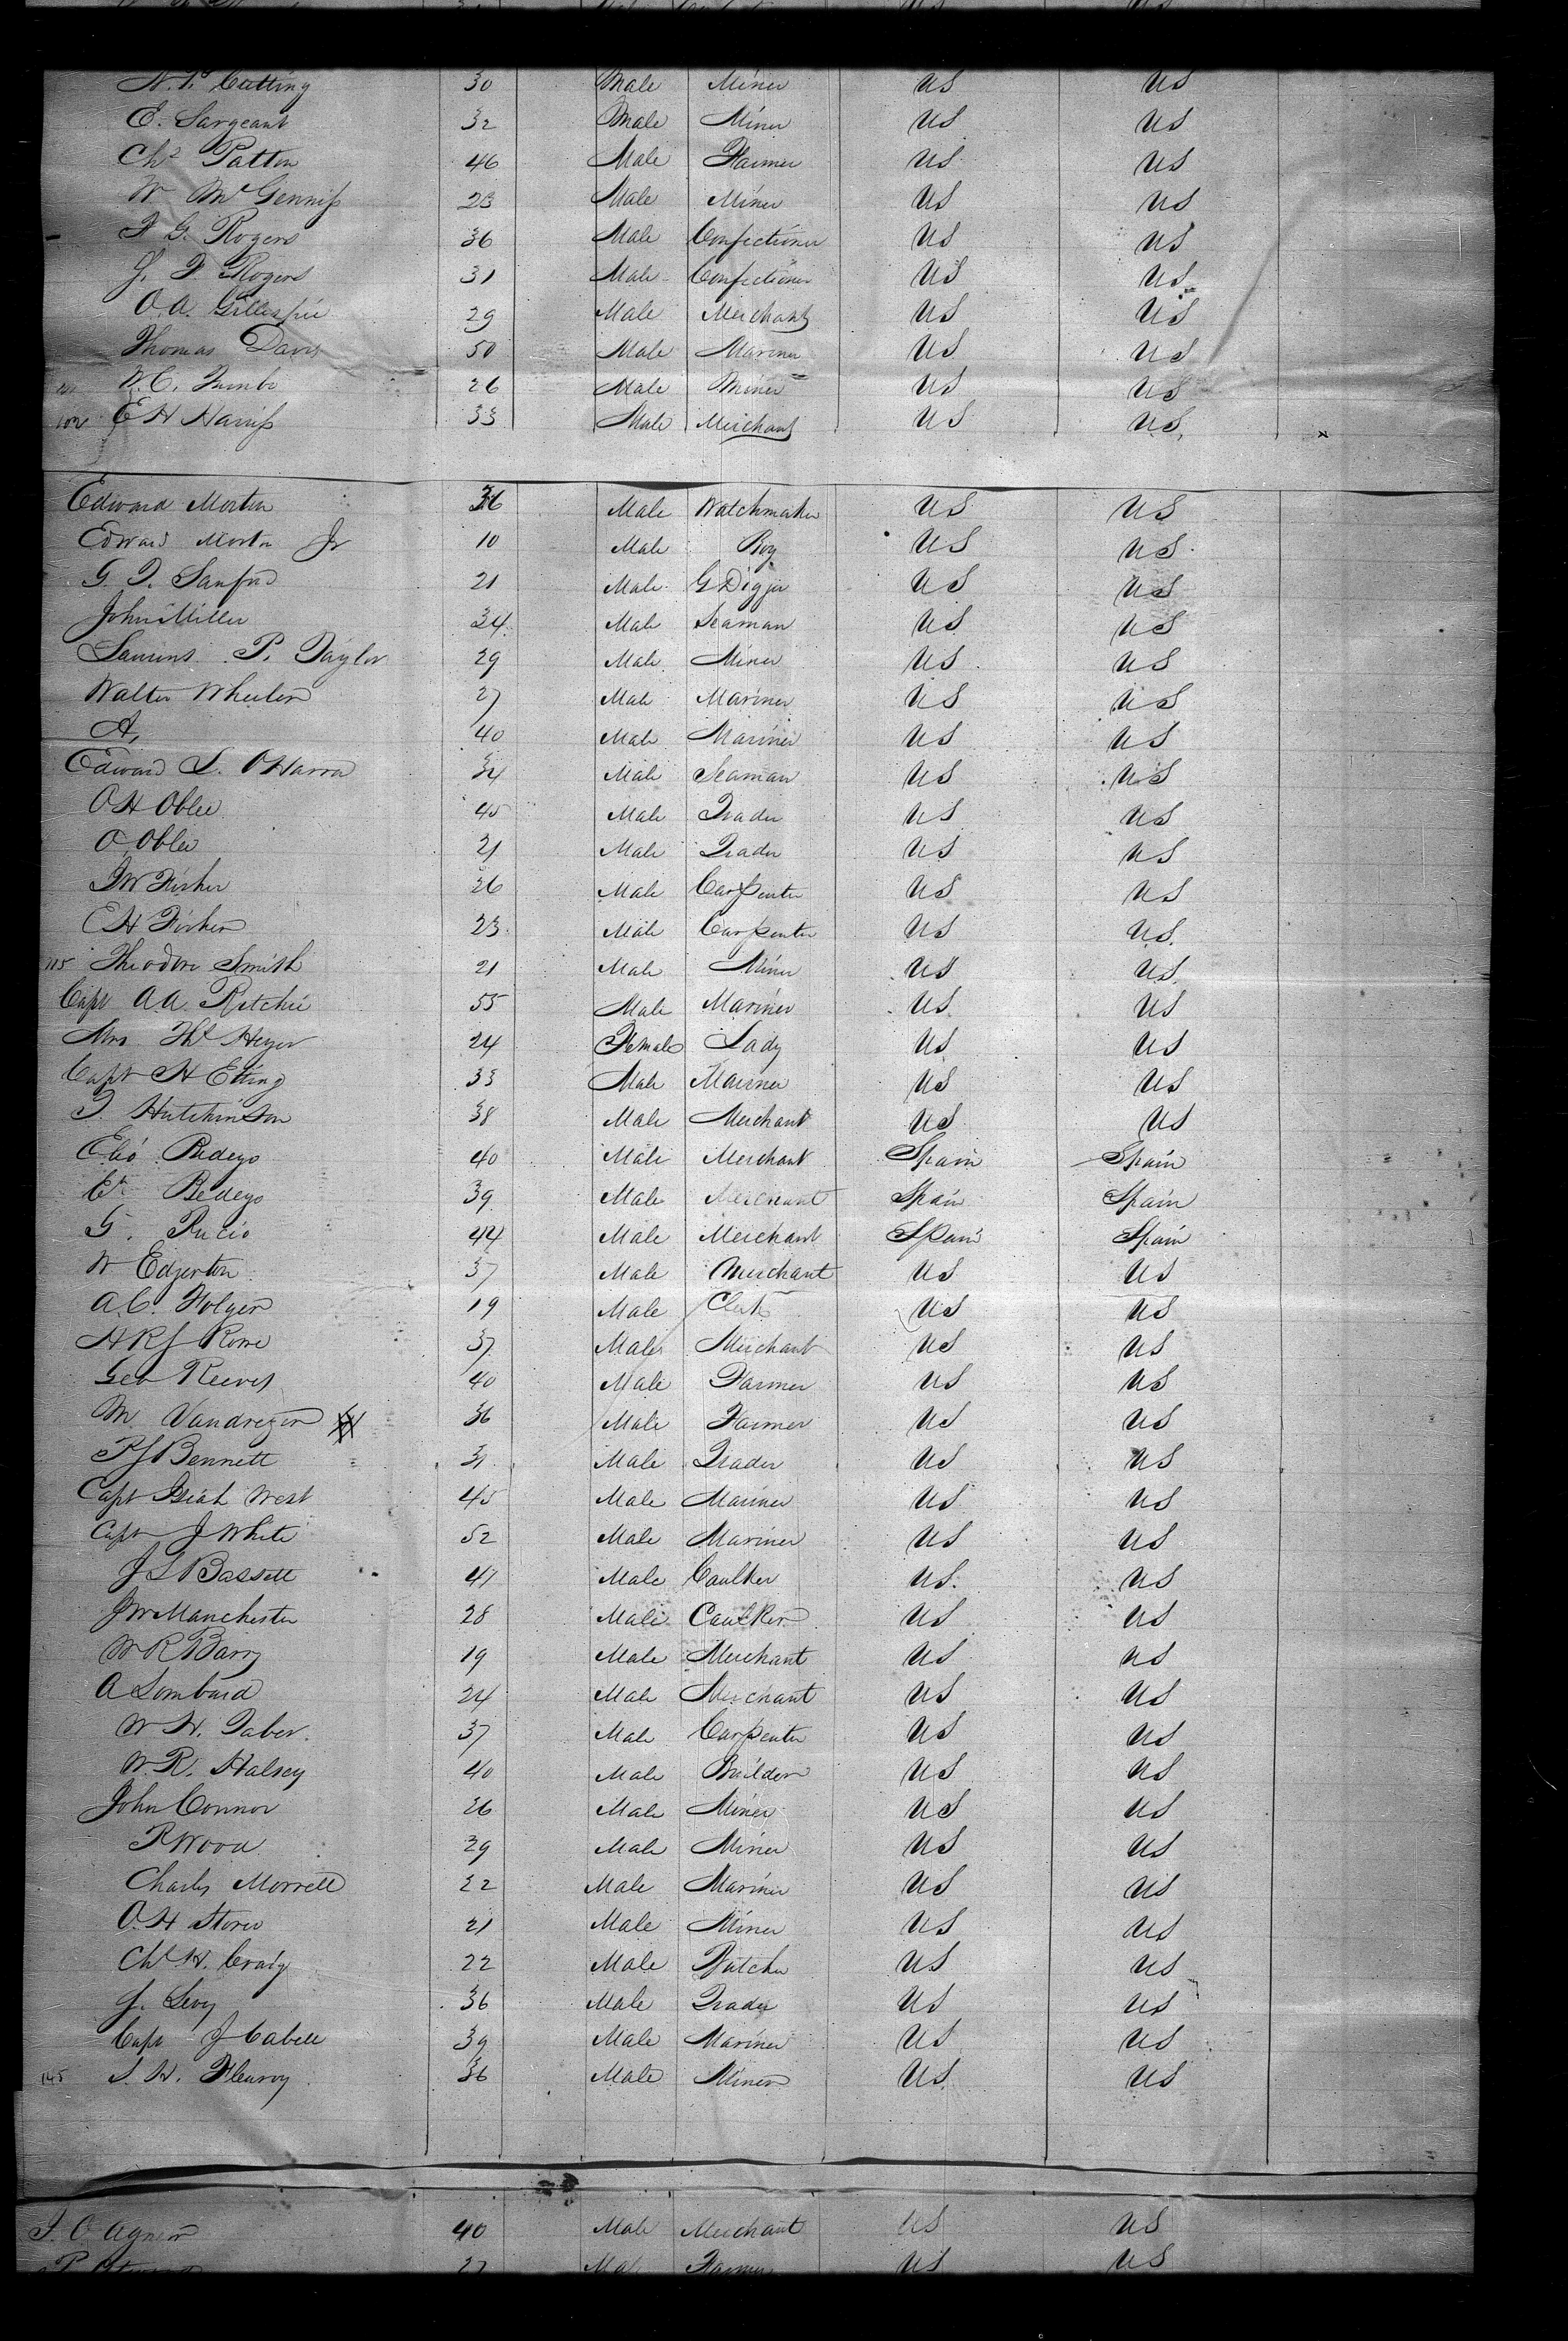 N. P. Cutting 30 Male Miner US US
E. Sargeant 32 Male Miner US US
Chs Patten 46 Male Farmer US US
W McGenniss 23 Male Miner US US
G. Rogers 36 Male Confectioner US US
Rogers 31 Male Confectioner US US
O. A. Gillespie 29 Male Merchant US US
Thomas Davis 50 Male Mariner US US
W. C. 26 Male Miner US US
102 E H Harriss 33 Male Merchant US US
Edward Morton 36 Male Watchmaker US US
Edward Morton Jr 10 Male Boy US US
G. T. Sanford 21 Male G Digger US US
John Miller 34 Male Seaman US US
Laurens P. Taylor 29 Male Miner US US
Walter Wheeler 27 Male Mariner US US
A, 40 Male Mariner US US
Edward L. OHarra 34 Male Seaman US US
O H Oblee 45 Male Trader US US
O Oblee 21 Male Trader US US
Fisher 26 Male Carpenter US US
E H Fisher 23 Male Carpenter US US
115 Theodore Smith 21 Male Miner US US
Capt A. A. Ritchie 55 Male Mariner US US
Mrs Heyer 24 Female Lady US US
Capt H Etting 33 Male Mariner US US
T. Hutchinson 38 Male Merchant US US
Bedeyo 40 Male Merchant Spain Spain
Bedeyo 39 Male Merchant Spain Spain
G. Rucio 44 Male Merchant Spain Spain
W Edgerton 37 Male Merchant US US
A. C. Folger 19 Male Clerk US US
H R J Rowe 37 Male Merchant US US
Geo Reeves 40 Male Farmer US US
M Vandrezer 36 Male Farmer US US
P J Bennett 31 Male Trader US US
Capt West 45 Male Mariner US US
Capt J White 52 Male Mariner US US
J L Bassett 47 Male Caulker US. US
J W Manchester 28 Male Caulker US US
W R Barry 19 Male Merchant US US
A Lombard 24 Male Merchant US US
W H. Taber 37 Male Carpenter US US
W. R. Halsey 40 Male Builder US US
John Connor 26 Male Miner US US
R Wood 29 Male Miner US US
Charles Morrell 22 Male Mariner US US
O. H Storer 21 Male Miner US US
Chs H. Craig 22 Male Butcher US US
J. Levy 36 Male Trader US US
Capt J Cabell 39 Male Mariner US US
145 S. H. Fleuroy 36 Male Miner US US
Agnew 40 Male Merchant US US
Farmer US US